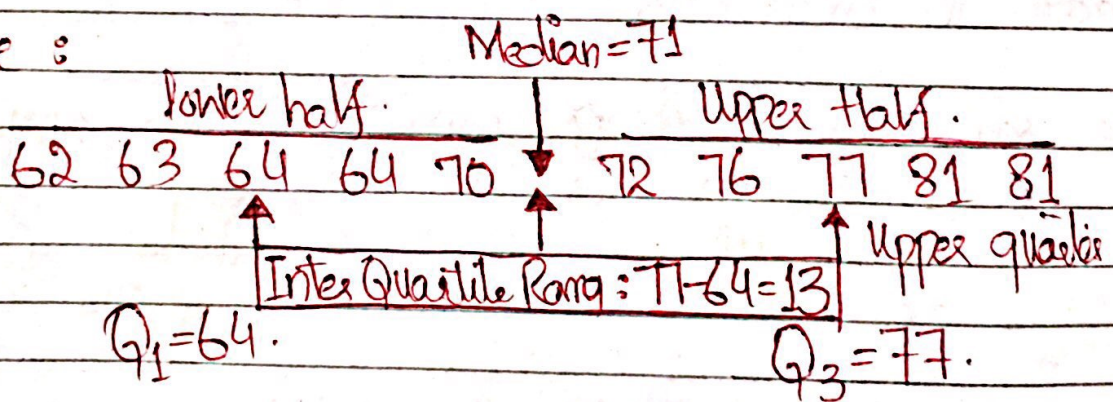 e :
Median=71
lower half.
Upper Half.
62 63 64 64 70 72 76 77 81 81
Upper
Inter Quartile Rang : 77-64=13
Q1=64.
Q3=77.